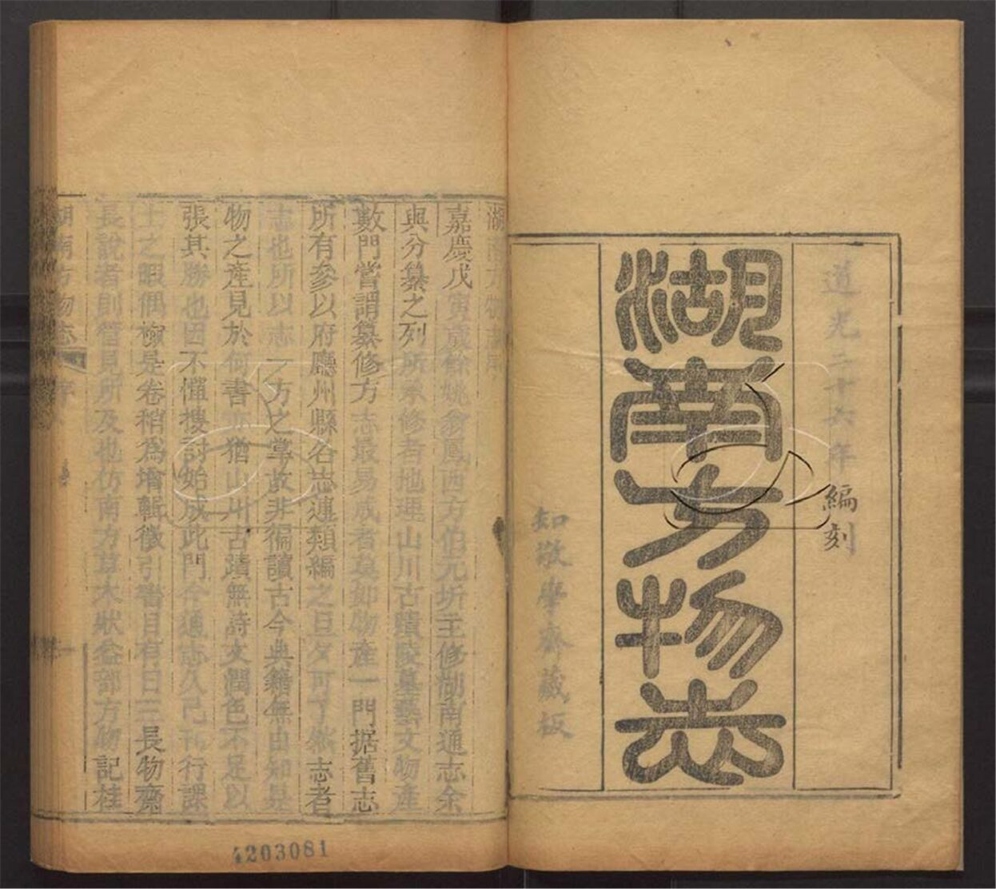 道光二十六年編刻
湖南方物志
知敬學齋藏板
湖南方物志序
嘉慶戊寅歲餘姚翁鳳西方伯元圻主修湖南通志余
與分纂之列所承修者地理山川古蹟陵墓藝文物產
數門嘗謂纂修方志最易成者莫如物產一門据舊志
所有參以府廳州縣各志連類編之旦夕可了然志者
志也所以志一方之掌故非徧讀古今典籍無由知是
物之產見於何書亦猶山川古蹟無詩文潤色不足以
張其勝也因不憚搜討始成此門今通志久已刊行課
士之暇偶檢是卷稍爲增輯徵引書目有曰三長物齋
長說者則管見所及也仿南方草木狀益部方物記桂
湖南方物志 序 一
4203081